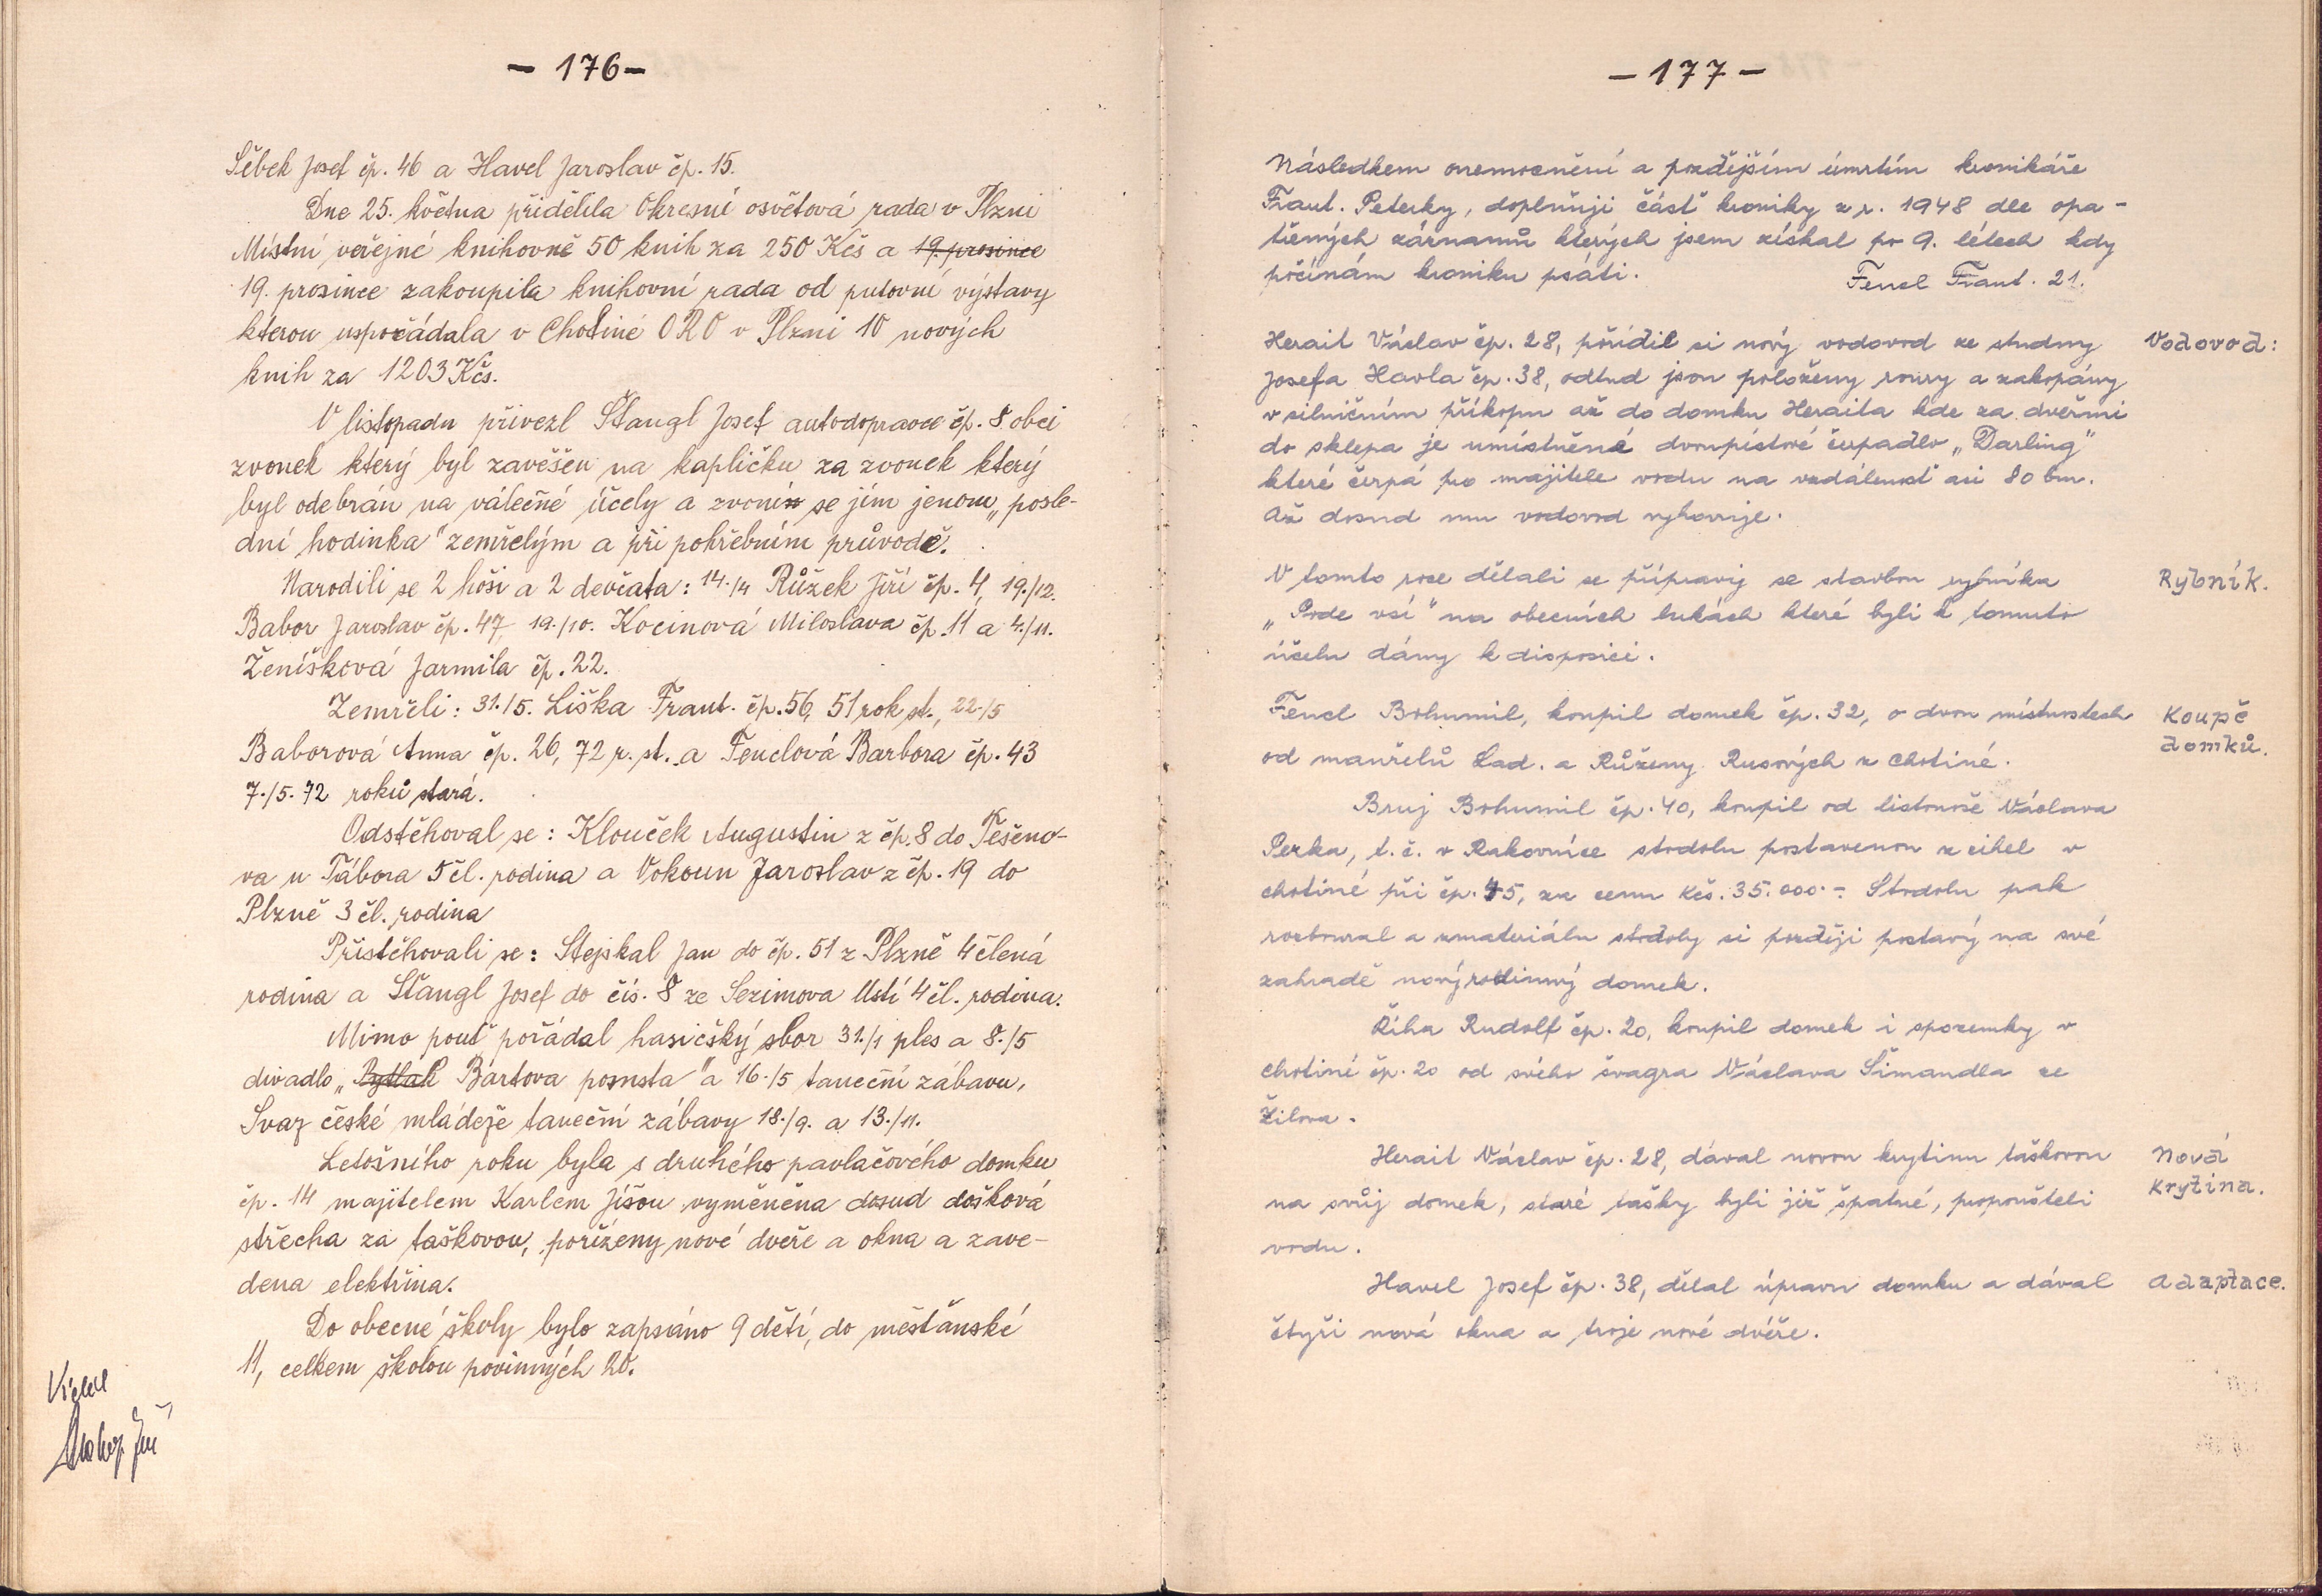 - 176 -
Šěbek Josef čp. 46 a Havel Jaroslav čp. 15.
Dne 25. května přidělila Okresní osvětová rada v Plzni
Místní veřejné knihovně 50 knih za 250 Kčs a 19. prosince
19. prosince zakoupila knihovní rada od putovní výstavy
kterou uspořádala v Chotiné ORO v Plzni 10 nových
knih za 1203 Kčs.
V listopadu přivezl Štangl Josef autodopravce čp. 8 obci
zvonek který byl zavěšen na kapličku za zvonek který
byl odebrán na válečné účely a zvoní se jím jenom „posle-
dní hodinka" zemřelým a při pohřebním průvodě.
Narodili se 2 hoši a 2 děvčata: 14./4 Růžek Jiří čp. 4, 19./12.
Babor Jaroslav čp. 47, 19./10. Kocinová Miloslava čp. 11 a 4./11.
Ženíšková Jarmila čp. 22.
Zemřeli: 31./5. Liška Frant. čp. 56, 51 rok st., 22./5
Baborová Anna čp. 26, 72 r. st. a Fenclová Barbora čp. 43
7./5. 72 roků stará.
Odstěhoval se: Klouček Augustin z čp. 8 do Těšeno-
va u Tábora 5 čl. rodina a Vokoun Jaroslav z čp. 19 do
Plzně 3 čl. rodina
Přistěhovali se: Stejskal Jan do čp. 51 z Plzně 4 člená
rodina a Štangl Josef do čís. 8 ze Sezimova Ústí 4 čl. rodina.
Mimo pouť pořádal hasičský sbor 31./1 ples a 8./5
divadlo „Pytlák Bártova pomsta" a 16./5 taneční zábavu,
Svaz české mládeže taneční zábavy 18./9. a 13./11.
Letošního roku byla s druhého pavlačového domku
čp. 14 majitelem Karlem Jíšou vyměněna dosud došková
střecha za taškovou, pořízeny nové dveře a okna a zave-
dena elektřina.
Do obecné školy bylo zapsáno 9 dětí, do mešťanské
11, celkem školou povinných 20.
- 177 -
Následkem onemocnění a pozdějším úmrtím kronikáře
Frant. Peterky, doplňuji část kroniky z r. 1948 dle opa-
třených záznamů kterých jsem získal po 9. létech kdy
počínám kroniku psáti.
Fencl Frant. 21.
Vodovod:
Herait Václav čp. 28, pořídil si nový vodovod ze studny
Josefa Havla čp. 38, odtud jsou položeny roury a zakopány
v silničním příkopu až do domku Heraita kde za dveřmi
do sklepa je umístněné dvoupístové čerpadlo „Darling"
které čerpá pro majitele vodu na vzdálenost asi 80 bm.
Až dosud mu vodovod vyhovuje.
Rybník.
V tomto roce dělali se přípravy se stavbou rybníka
„Pode vsí" na obecních lukách které byli k tomuto
účelu dány k disposici.
Koupě
domků.
Fencl Bohumil, koupil domek čp. 32, o dvou místnostech
od manželů Lad. a Růženy Rusových z Chotiné.
Bruj Bohumil čp. 40, koupil od listonoše Václava
Perka, t. č. v Rakovníce stodolu postavenou z cihel v
Chotiné při čp. 45, za cenu Kčs. 35.000.- Stodolu pak
rozboural a z materiálu stodoly si později postavý na své
zahradě nový rodinný domek.
Říha Rudolf čp. 20, koupil domek i spozemky v
Chotiné čp. 20 od svého švagra Václava Šimandla ze
Žilova.
Nová
Krytina.
Herait Václav čp. 28, dával novou krytinu taškovou
na svůj domek, staré tašky byli již špatné, propoušteli
vodu.
Adaptace.
Havel Josef čp. 38, dělal úpravu domku a dával
čtyři nová okna a troje nové dvéře.